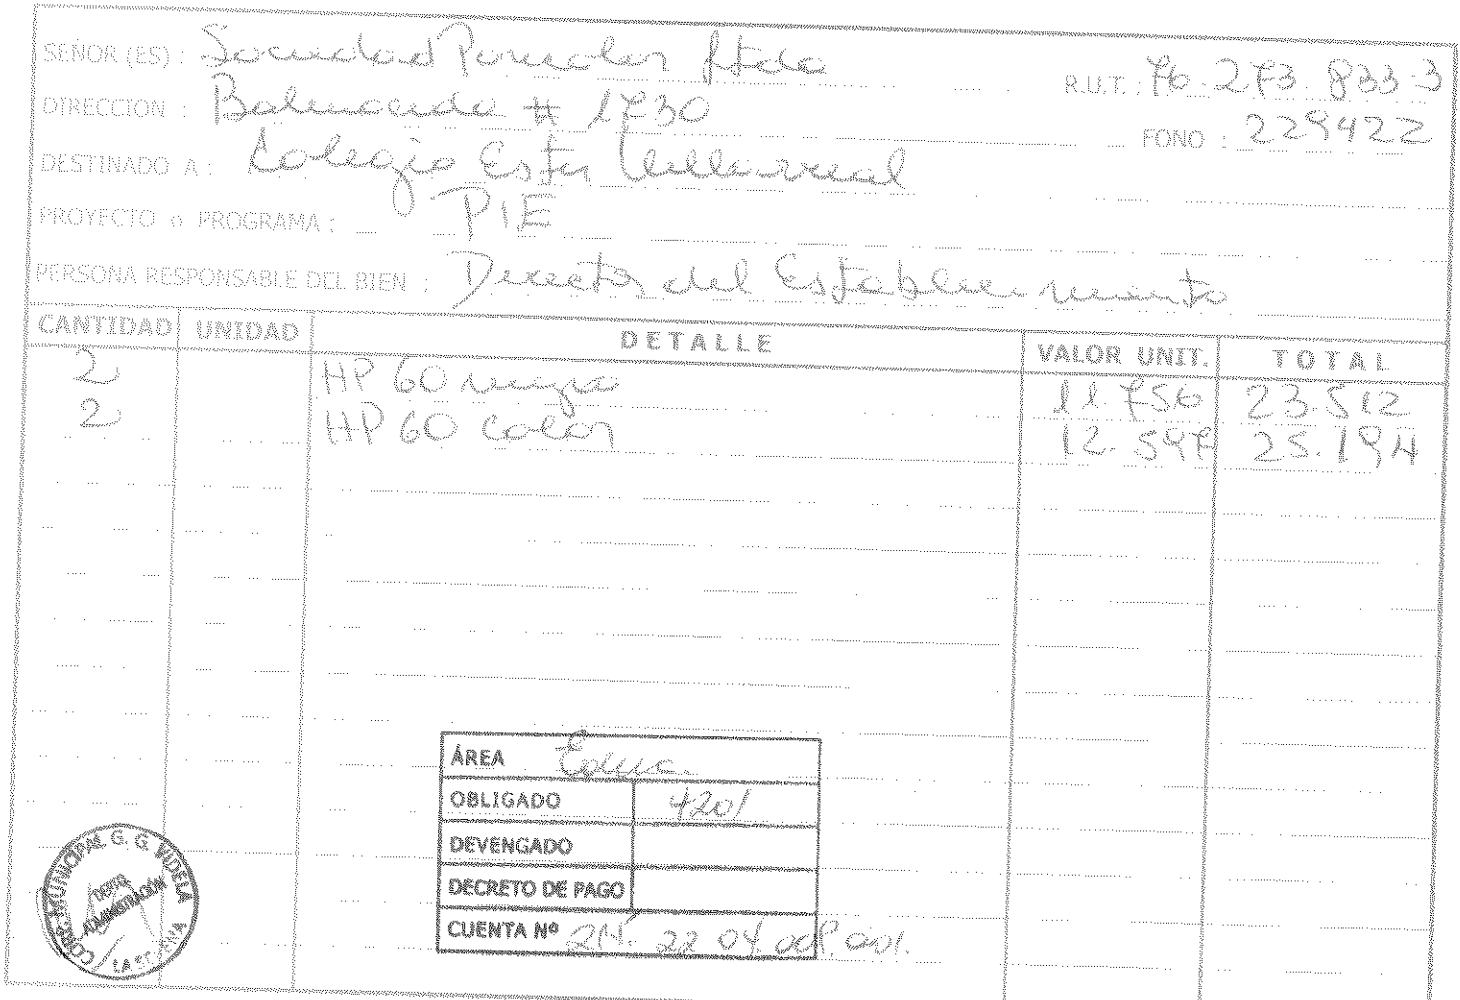 SEÑOR (ES) : Sociedad Percoler Ltda R.U.T. : 76.273.833-3
DIRECCION : Balmaceda # 1730 FONO : 229422
DESTINADO A : Colegio Villarreal
PROYECTO o PROGRAMA : PIE
PERSONA RESPONSABLE DEL BIEN : Director del Establecimiento
CANTIDAD UNIDAD DETALLE VALOR UNIT. TOTAL
2 HP 60 negro 11.756 23.512
2 HP 60 color 12.597 25.194
ÁREA Educ.
OBLIGADO 4201
DEVENGADO
DECRETO DE PAGO
CUENTA Nº 214. 22 04. 009. 001.
CORP. MUNICIPAL G. G. VIDELA
DEPTO. ADMINISTRACIÓN
LA SERENA